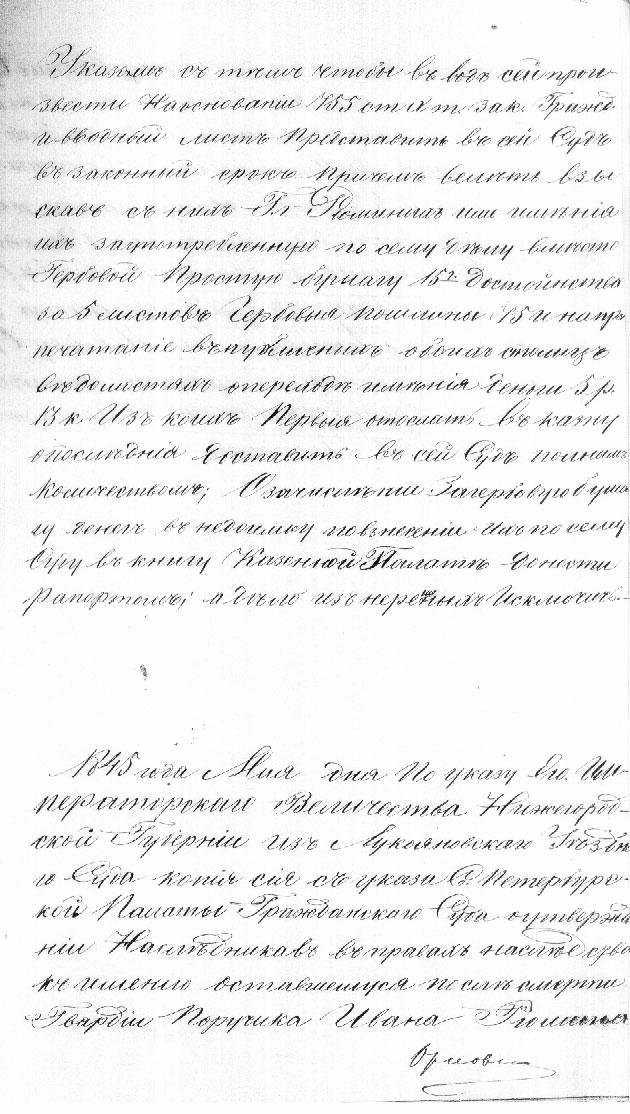 Указомъ съ тѣмъ чтобы въ водъ сей прои-
звести На основаніи 755 ст. X т. Зак. Гражд.
и вводный листъ Представить въ сей Судъ
въ законный срокъ причемъ велѣть взы
скавъ съ нихъ Гг Рюминыхъ или имѣнія
ихъ заупотребленную по сему дѣлу вмѣсто
Гербовой Простую бумагу 15 Достоинства
за 5 листовъ Гербовыя пошлины 75 и на при
печатаніе въ публикіяхъ обоихъ столицъ
вѣдомостяхъ о переходѣ имѣнія деньги 5 р.
13 к. Изъ коихъ Первыя отослать въ казну
а послѣднія доставить въ сей Судъ полнымъ
количествомъ; О зачисленіи За гербовую бума
гу денегъ въ недоимку по взнесеніи ихъ по сему
Суду въ книгу Казенной Палатѣ донести
рапортомъ; а дѣло изъ нерѣшеныхъ Исключивъ.
1845 года Мая дня По указу Его Им-
ператорскаго Величества Нижегород-
ской Губерніи изъ Лукояновскаго Уѣздна
го Суда копія сія съ указа С. Петербург-
кой Палаты Гражданского Суда о утвержде
ніи Наслѣдниковъ въ правахъ наслѣдства
къ имению оставшемуся послѣ смерти
Гвардіи Поручика Ивана Рюмина
Орлов